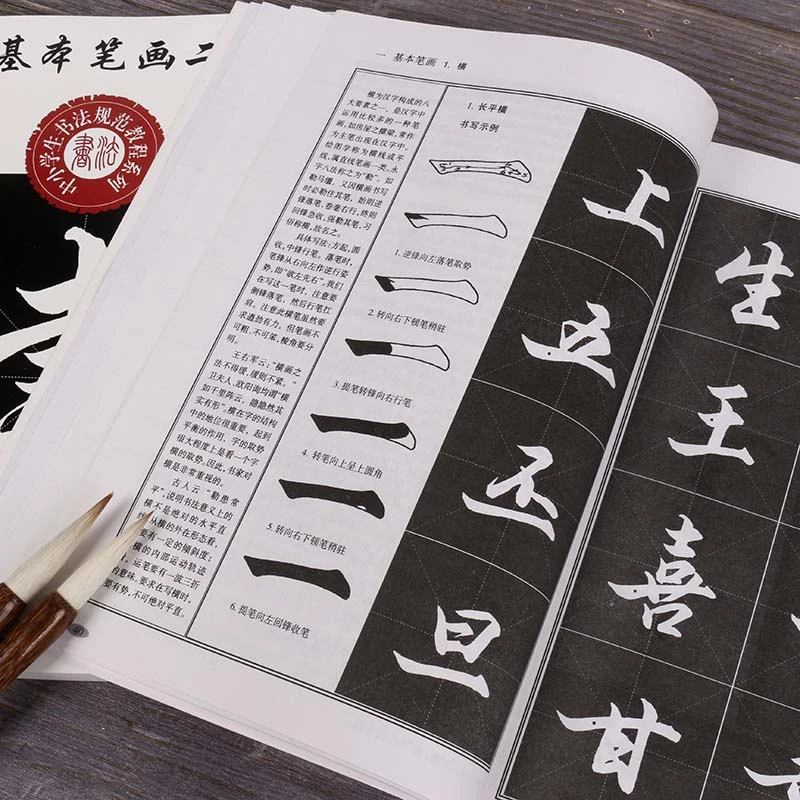 基本笔画二
中小学生书法规范教程系列
書法
一 基本笔画 1. 横
横为汉字构成的八
大要素之一，是汉字中
运用比较多的一种笔
画，如房屋之横梁，常作
为主笔出现在汉字中，
绘图学称为横线或平
线，属直线笔画一类。永
字八法称之为“勒”。如
勒马缰，又因横画书写
时必勒住其笔，始则逆
锋落笔，卷毫右行，终则
回锋急收，强勒其笔，习
俗称横，故名之。
具体写法：方起，圆
收，中锋行笔。落笔时，
笔锋从右向左作逆行姿
势，即“欲左先右”。我们
在写这一笔时，注意要
侧锋落笔，然后行笔扛
肩。注意此横笔虽然要
求遒劲有力，但笔画不
可粗、不可笨，棱角要分
明。
王右军云：“横画之
法不得缓，缓则不紧。”
卫夫人、欧阳询均谓“横
如千里阵云，隐隐然其
实有形”。横在字的结构
中的地位很重要，起到
平衡的作用，字的取势
很大程度上是看一个字
横的取势。因此，书家对
横是非常重视的。
古人云“勒患常
平”，说明书法意义上的
横不是绝对的水平直
从横的外在形态看，
要有一定的倾斜度；
横的内部运动轨迹
，运笔要有一波三折
的意味。要求在写横时，
要有势，不可绝对平直。
40
1. 长平横
书写示例
1. 逆锋向左落笔取势
2. 转向右下顿笔稍驻
3. 提笔转锋向右行笔
4. 转笔向上呈上圆角
5. 转向右下顿笔稍驻
6. 提笔向左回锋收笔
上
五
丕
旦
生
王
喜
甘